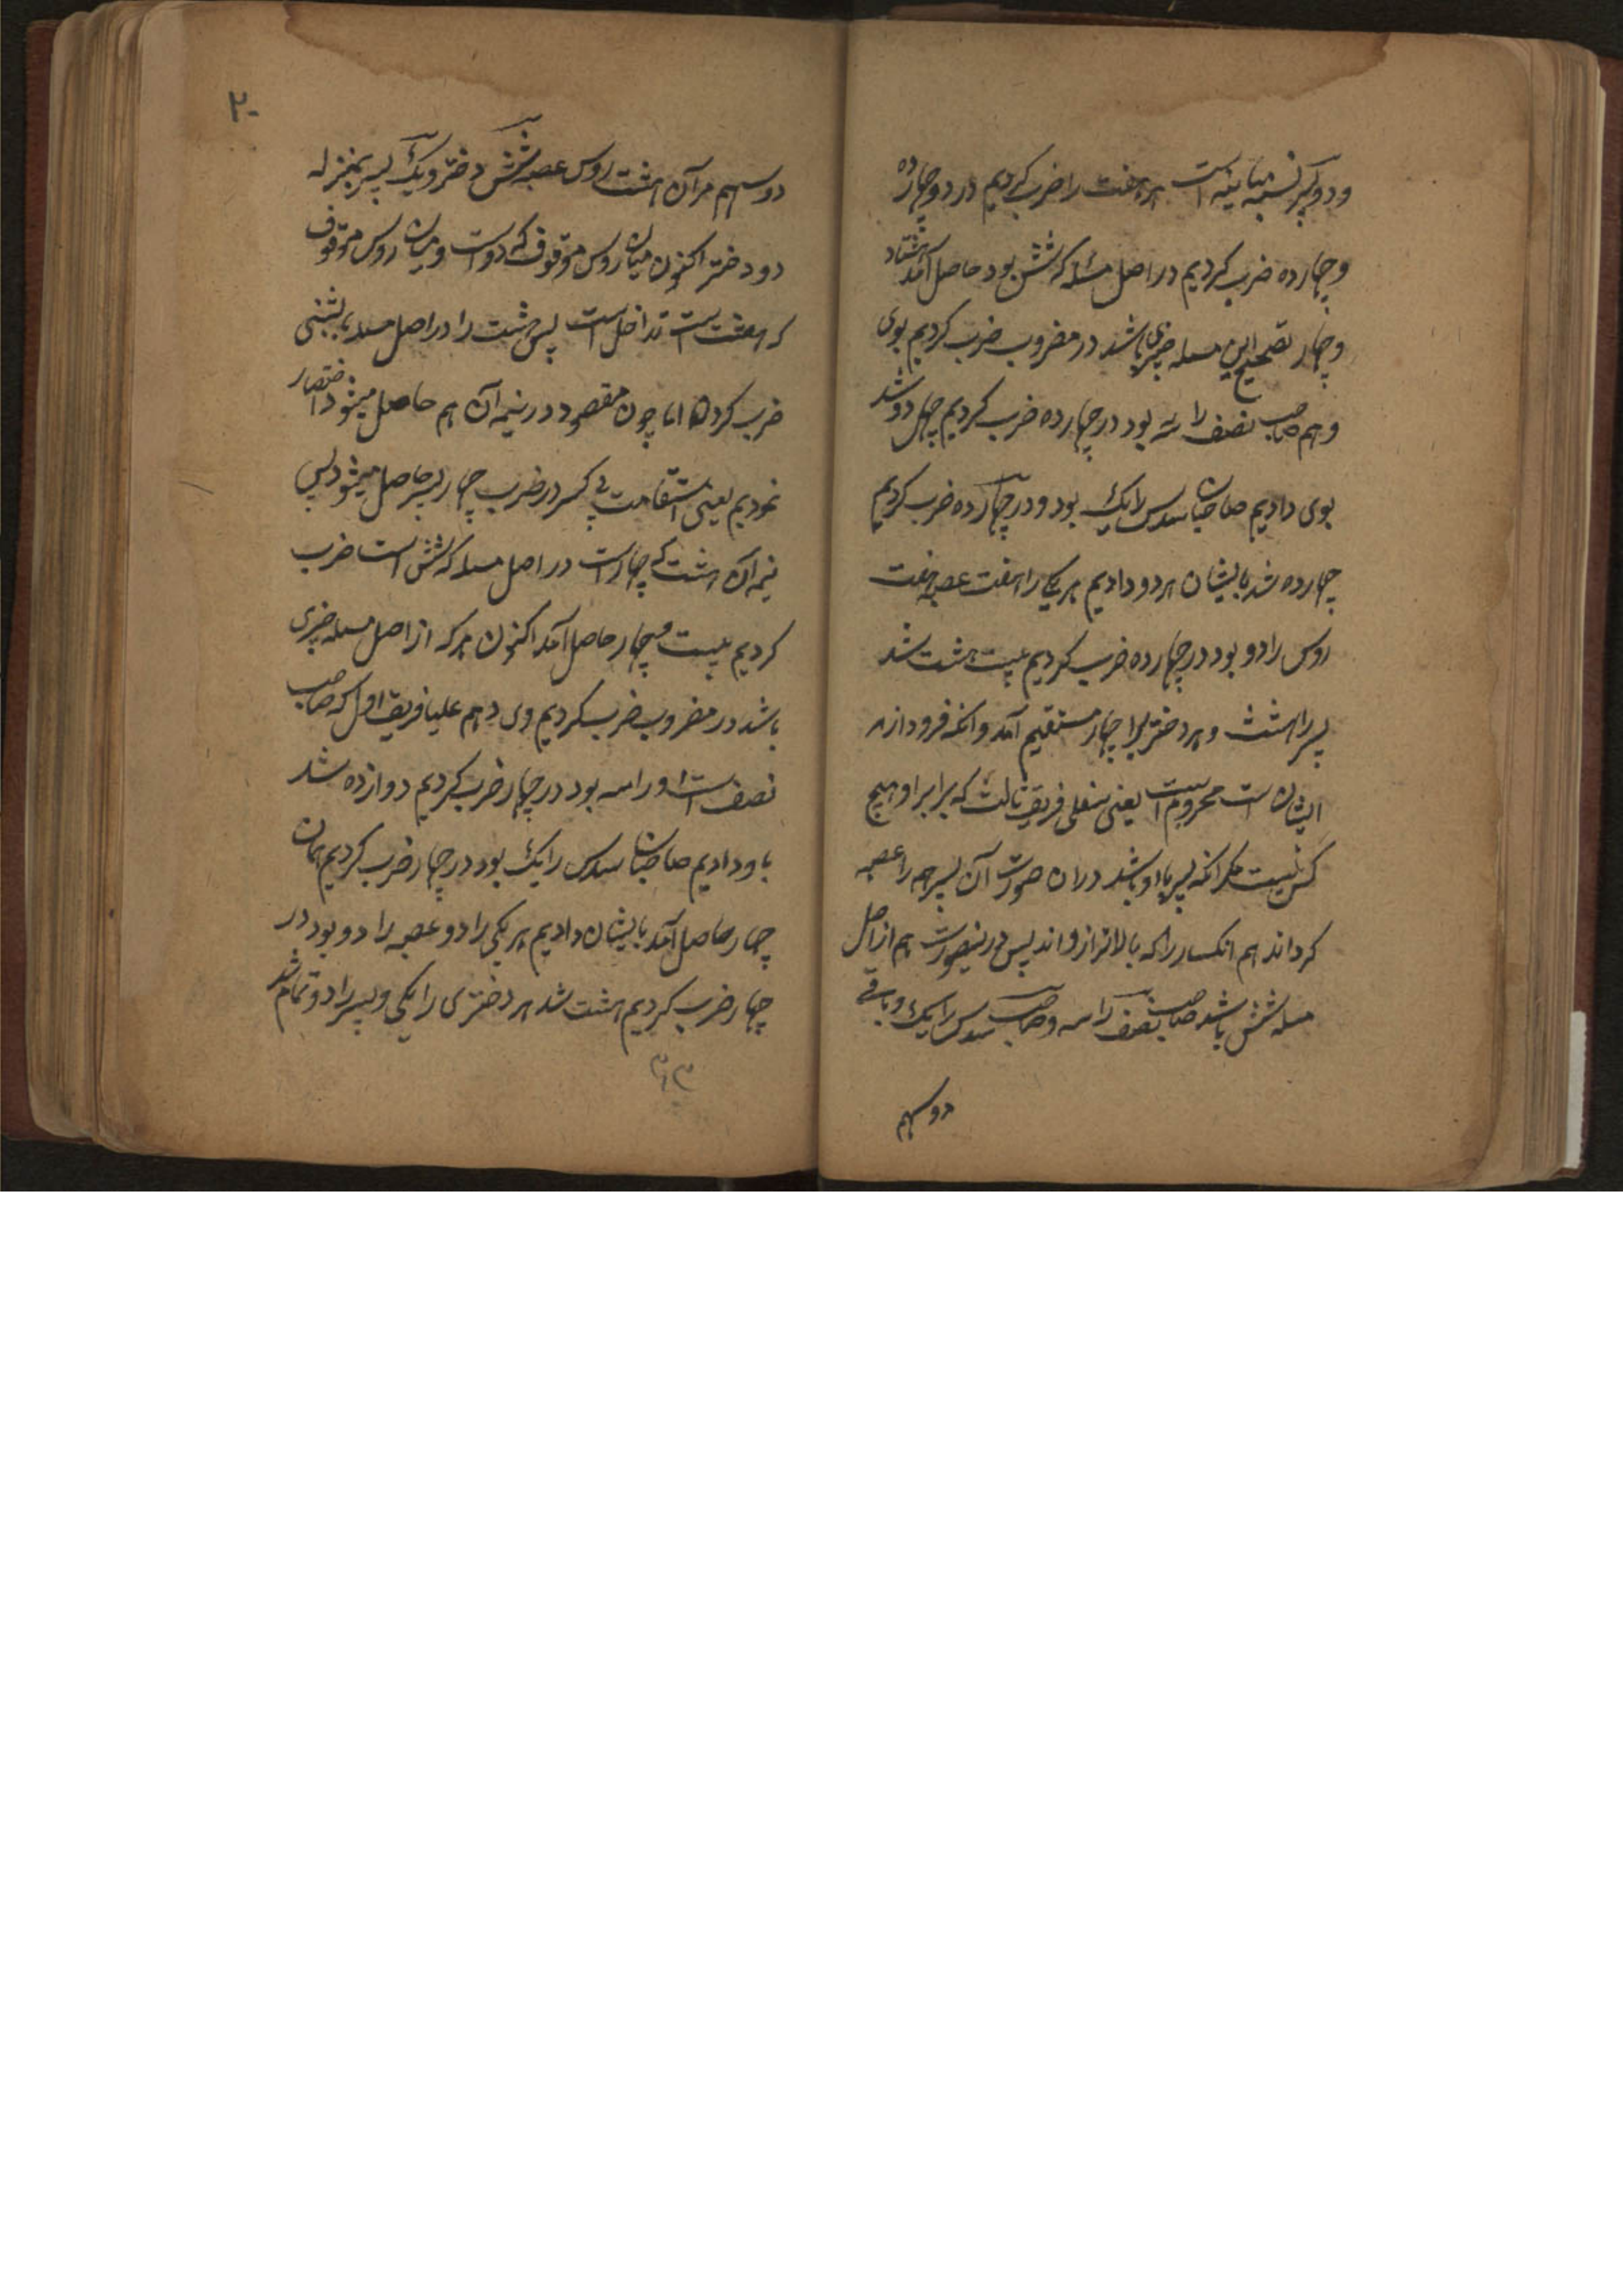 ودو دیگر نسبت مباینه است هر هفت را ضرب کردیم در دو چهارده
و چهارده ضرب کردیم در اصل مسئله که شش بود حاصل آمد هشتاد
و چهار تصحیح این مسله چیزی باشد در مضروب ضرب کردیم بوی
و هم صاحب نصف را سه بود در چهارده ضرب کردیم چهل دو شد
بوی دادیم صاحبان سدس را یک بود و در چهارده ضرب کردیم
چهارده شد بایشان هر دو دادیم هر یکی را هفت عصبه هفت
روس را دو بود در چهارده ضرب کردیم بیست هشت شد
پسر را هشت و هر دختر را چهار مستقیم آمد وانکه فرود از
ایشان است محروم است یعنی سفلی فریق ثالث که برابر او هیچ
کس نیست مکر انکه پسر با او باشد دران صورت آن پسر همه را عصبه
کرداند هم انکسار را که بالاتر از واند پس درینصورت هم از اصل
مسله شش باشد صاحب نصف را سه و صاحب سدس را یک و باقی
دو سهم
۲۰
دو سهم مر آن هشت روس عصبه شش دختر و یک پسر بمنزله
دو دختر اکنون میان روس موقوف که دو است و میان روس موقوف
که هشت است تداخل است پس هشت را در اصل مسله بایستی
ضرب کردن اما چون مقصود در نیمه آن هم حاصل میشود اختصار
نمودیم یعنی استقامت بی کسر در ضرب چهار نیز حاصل میشود پس
نیمه آن هشت که چهار است در اصل مسله که شش است ضرب
کردیم بیست و چهار حاصل آمد اکنون هر که از اصل مسله چیزی
باشد در مضروب ضرب کردیم وی دهم علیا فریق اول که صاحب
نصف است او را سه بود در چهار ضرب کردیم دوازده شد
باو دادیم صاحبان سدس را یک بود در چهار ضرب کردیم همان
چهار حاصل آمد بایشان دادیم هر یکی را دو عصبه را دو بود در
چهار ضرب کردیم هشت شد هر دختری را یکی و پسر را دو تمام شد